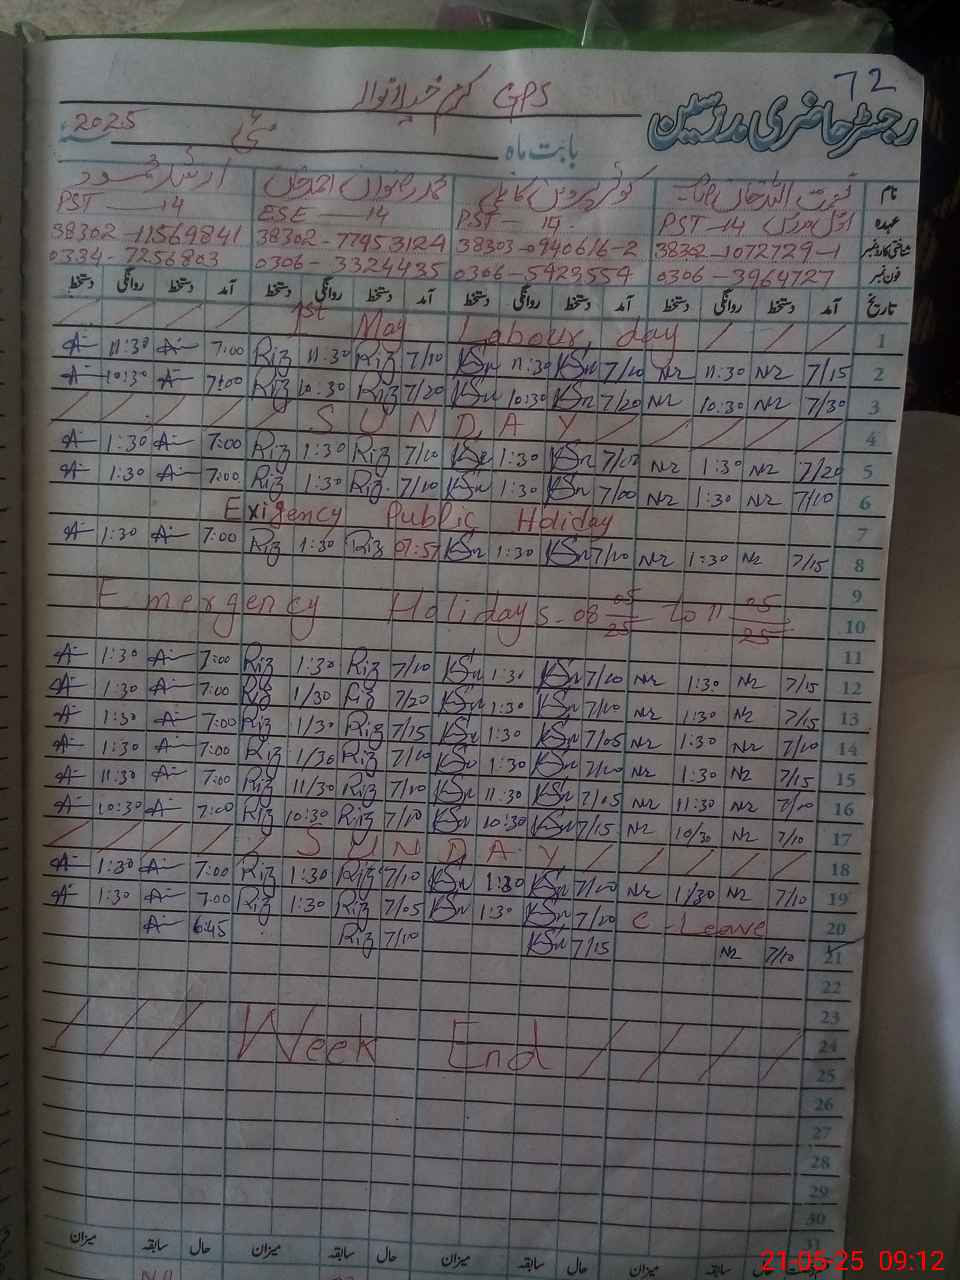 72
رجسٹر حاضری مدرسین
GPS کرم خیلانوالہ
بابت ماہ مئی سنہ 2025
نام
عہدہ PST-14 ESE — 14 PST — 14. PST — 14
شناختی کارڈ نمبر 38302-1072729-1 38303-0940616-2 38302-77953124 38302-11569841
فون نمبر 0306-3964727 0306-5923554 0306-3324435 0334-7256803
تاریخ آمد دستخط روانگی دستخط آمد دستخط روانگی دستخط آمد دستخط روانگی دستخط آمد دستخط روانگی دستخط
1 1st May Labour day
2 7/15 NR 11:30 NR 7/10 KSn 11:30 KSn 7/10 Riz 11:30 Riz 7:00 A 11:30 A
3 7/30 NR 10:30 NR 7/20 KSn 10:30 KSn 7/20 Riz 10:30 Riz 7:00 A 10:30 A
4 SUNDAY
5 7/20 NR 1:30 NR 7/10 KSn 1:30 KSn 7/10 Riz 1:30 Riz 7:00 A 1:30 A
6 7/10 NR 1:30 NR 7/00 KSn 1:30 KSn 7/10 Riz 1:30 Riz 7:00 A 1:30 A
7 Exigency Public Holiday
8 7/15 NR 1:30 NR 7/10 KSn 1:30 KSn 07:57 Riz 1:30 Riz 7:00 A 1:30 A
9
10 Emergency Holidays - 08 05/25 to 11 05/25
11
12 7/15 NR 1:30 NR 7/10 KSn 1:30 KSn 7/10 Riz 1:30 Riz 7:00 A 1:30 A
13 7/15 NR 1:30 NR 7/10 KSn 1:30 KSn 7/20 Riz 1/30 Riz 7:00 A 1:30 A
14 7/10 NR 1:30 NR 7/05 KSn 1:30 KSn 7/15 Riz 1/30 Riz 7:00 A 1:30 A
15 7/15 NR 1:30 NR 7/10 KSn 1:30 KSn 7/10 Riz 1/30 Riz 7:00 A 1:30 A
16 7/10 NR 11:30 NR 7/05 KSn 11:30 KSn 7/10 Riz 11/30 Riz 7:00 A 11:30 A
17 7/10 NR 10/30 NR 7/15 KSn 10:30 KSn 7/10 Riz 10:30 Riz 7:00 A 10:30 A
18 SUNDAY
19 7/10 NR 1/30 NR 7/10 KSn 1:30 KSn 7/10 Riz 1:30 Riz 7:00 A 1:30 A
20 C-Leave 7/10 KSn 1:30 KSn 7/05 Riz 1:30 Riz 7:00 A 1:30 A
21 7/10 NR 7/15 KSn 7/10 Riz 6:45 A
22
23
24 Week End
25
26
27
28
29
30
31
حال سابقہ میزان حال سابقہ میزان حال سابقہ میزان
21-05-25 09:12